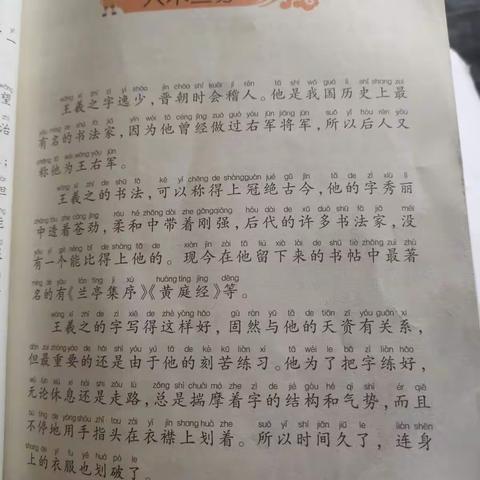 入木三分
王羲之字逸少，晋朝时会稽人。他是我国历史上最
有名的书法家，因为他曾经做过右军将军，所以后人又
称他为王右军。
王羲之的书法，可以称得上冠绝古今，他的字秀丽
中透着苍劲，柔和中带着刚强，后代的许多书法家，没
有一个能比得上他的。现今在他留下来的书帖中最著
名的有《兰亭集序》《黄庭经》等。
王羲之的字写得这样好，固然与他的天资有关系，
但最重要的还是由于他的刻苦练习。他为了把字练好，
无论休息还是走路，总是揣摩着字的结构和气势，而且
不停地用手指头在衣襟上划着。所以时间久了，连身
上的衣服也划破了。